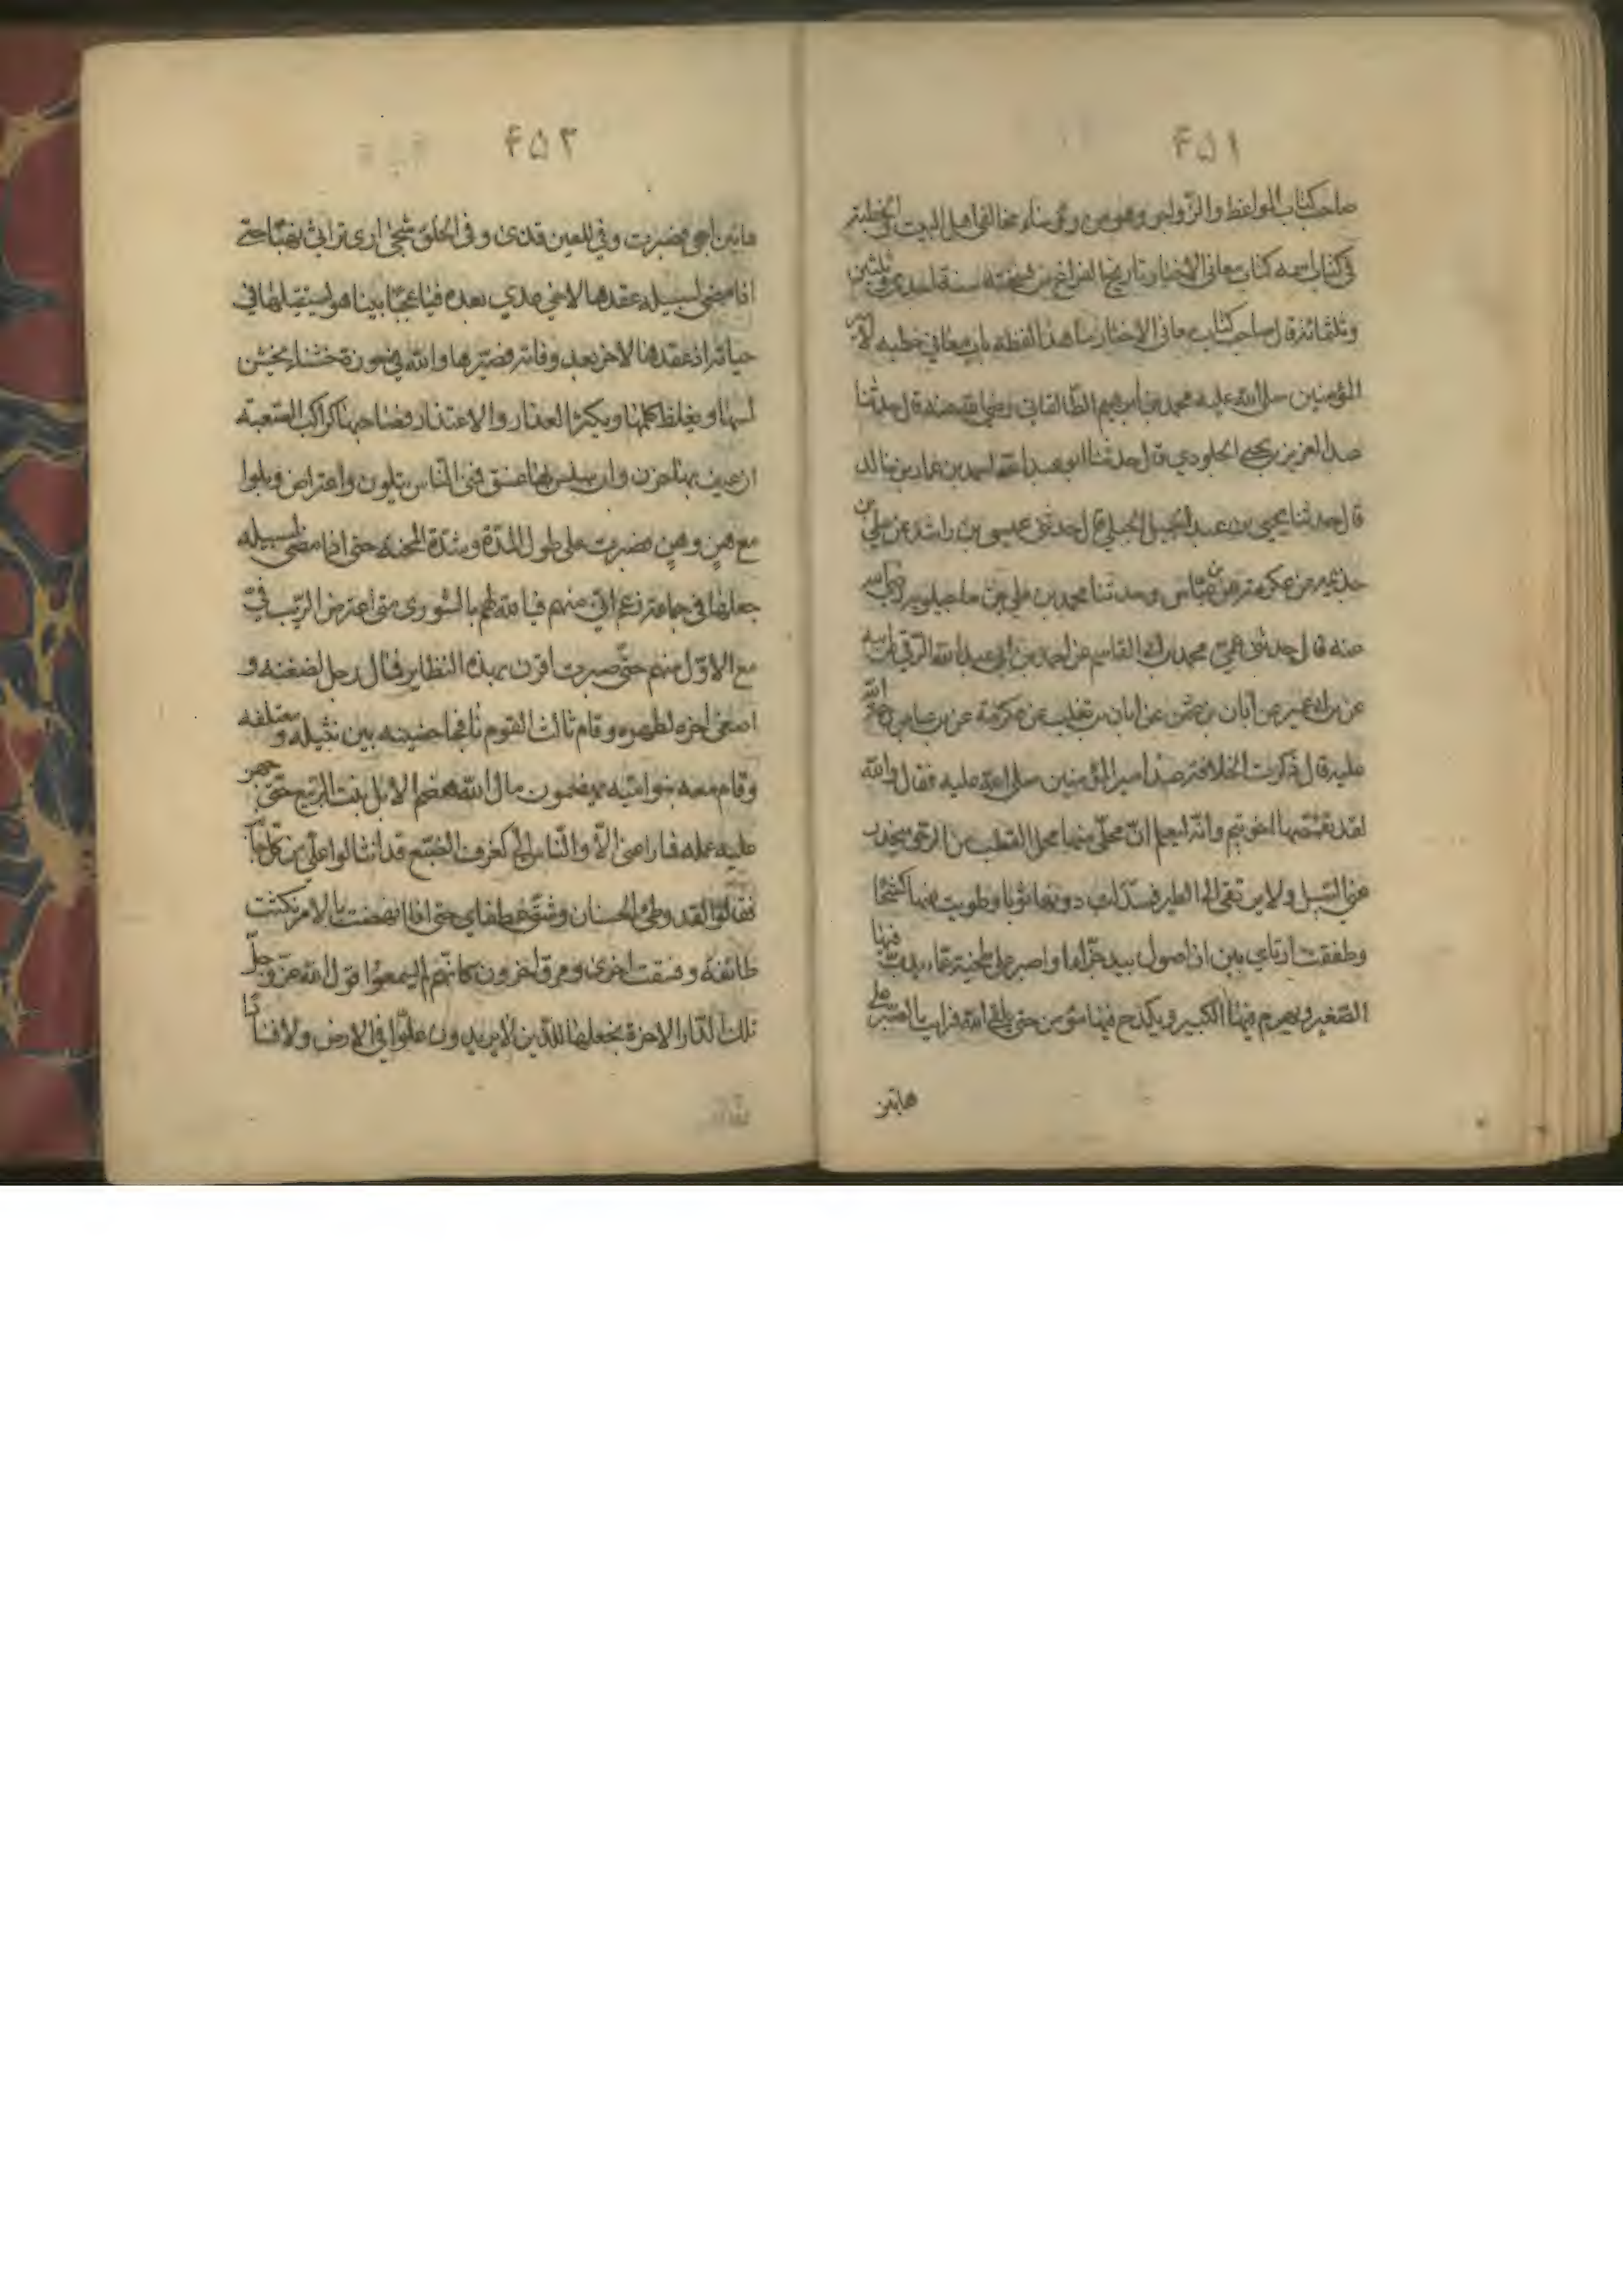 ۴۵۱
صاحب كتاب المواعظ والزواجر وهو من رؤساء مخالفي اهل البيت الخطبة
في كتاب اسمه كتاب معاني الاخبار تاريخ الفراغ من نسخته سنة احدى وثلثين
وثلثمائة قال صاحب كتاب معاني الاخبار ما هذا لفظه باب معاني خطبة لامير
المؤمنين صلى الله عليه محمد بن ابرهيم الطالقاني رضي الله عنه قال حدثنا
عبد العزيز بن يحيى الجلودي قال حدثنا ابو عبد الله احمد بن عمار بن خالد
قال حدثنا يحيى بن عبد الحميد قال حدثني عيسى بن راشد عن علي بن
حذيمه عن عكرمة عن ابن عباس وحدثنا محمد بن علي بن ماجيلويه رضي الله
عنه قال حدثني عمي محمد بن ابي القاسم عن احمد بن ابي عبد الله البرقي عن ابيه
عن ابن ابي عمير عن ابان بن عثمن عن ابان بن تغلب عن عكرمة عن ابن عباس
عليه قال ذكرت الخلافة عند امير المؤمنين صلى الله عليه فقال والله
لقد تقمصها اخو تيم وانه ليعلم ان محلي منها محل القطب من الرحى ينحدر
عني السيل ولا يرتقي الي الطير فسدلت دونها ثوبا وطويت عنها كشحا
وطفقت ارتاي بين ان اصول بيد جذاء او اصبر على طخية عمياء يشيب فيها
الصغير ويهرم فيها الكبير ويكدح فيها مؤمن حتى يلقى الله فرايت ان الصبر على
هاتين
۴۵۲
هاتين احجى فصبرت وفي العين قذى وفي الحلق شجى ارى تراثي نهبا حتى
اذا مضى لسبيله عقدها لاخي عدي بعده فيا عجبا بينا هو يستقيلها في
حياته اذ عقدها لاخر بعد وفاته فصيرها والله في حوزة خشناء يخشن
لمسها ويغلظ كلمها ويكثر العثار والاعتذار فصاحبها كراكب الصعبة
ان عنف بها حرن وان سلس بها غسق فمني الناس بتلون واعتراض وبلوا
مع هن وهن فصبرت على طول المدة وشدة المحنة حتى اذا مضى لسبيله
جعلها في جماعة زعم اني منهم فيا لله لهم بالشورى متى اعترض الريب في
مع الاول منهم حتى صرت اقرن بهذه النظاير فمال رجل لضغنه و
اصغى اخر لصهره وقام ثالث القوم نافجا حضنيه بين نثيله ومعتلفه
وقام معه بنو اميه يخضمون مال الله خضم الابل نبت الربيع حتى اجهز
عليه عمله فما راعني الا والناس الي كعرف الضبع قد انثالوا علي من كل جانب
لقد وطئ الحسنان وشق عطفاي حتى اذا نهضت بالامر نكثت
طائفة وفسقت اخرى ومرق اخرون كانهم لم يسمعوا قول الله عز وجل
تلك الدار الاخرة نجعلها للذين لا يريدون علوا في الارض ولا فسادا